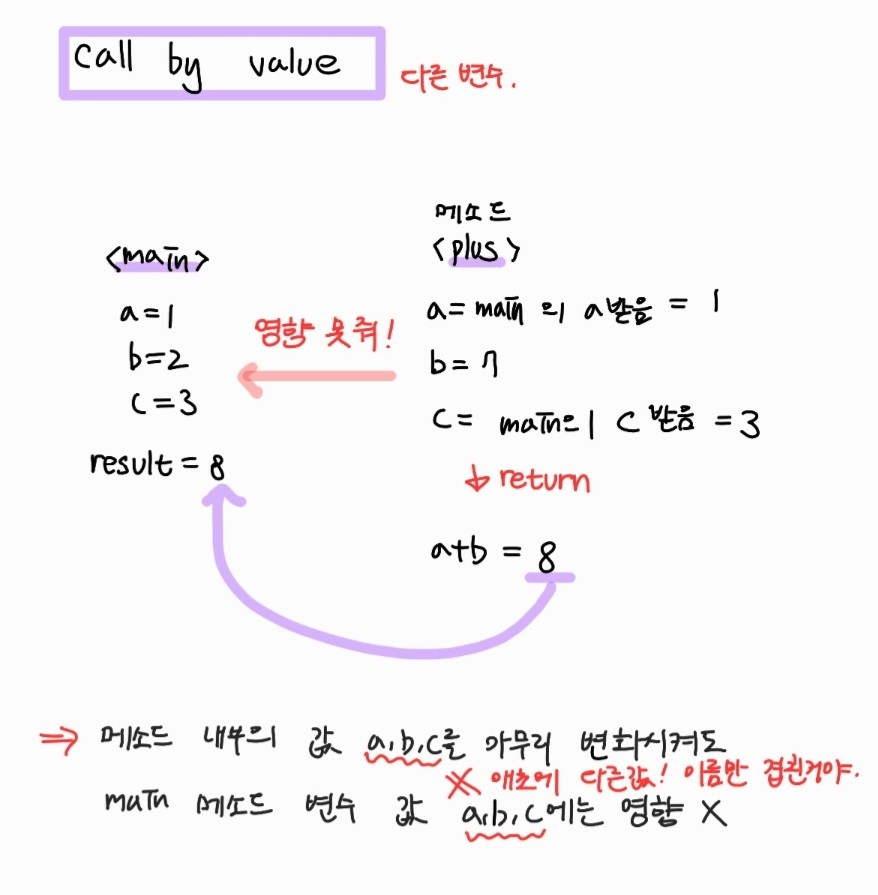 call by value
다른 변수.
<main>
a=1
b=2
c=3
result = 8
영향 못줘!
메소드
<plus>
a= main 의 a받음 = 1
b= 7
c= main의 c 받음 = 3
↓ return
a+b = 8
⇒ 메소드 내부의 값 a,b,c를 아무리 변화시켜도
※ 애초에 다른값! 이름만 겹친거야.
main 메소드 변수 값 a,b,c에는 영향 X